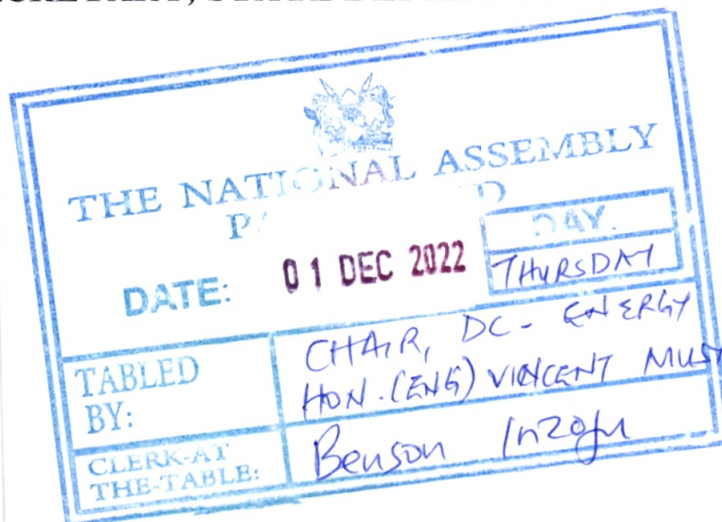 THE NATIONAL ASSEMBLY
DAY.
DATE: 01 DEC 2022 THURSDAY
TABLED BY: CHAIR, DC - ENERGY
HON. (ENG) VINCENT
CLERK-AT THE-TABLE: Benson Inzofu